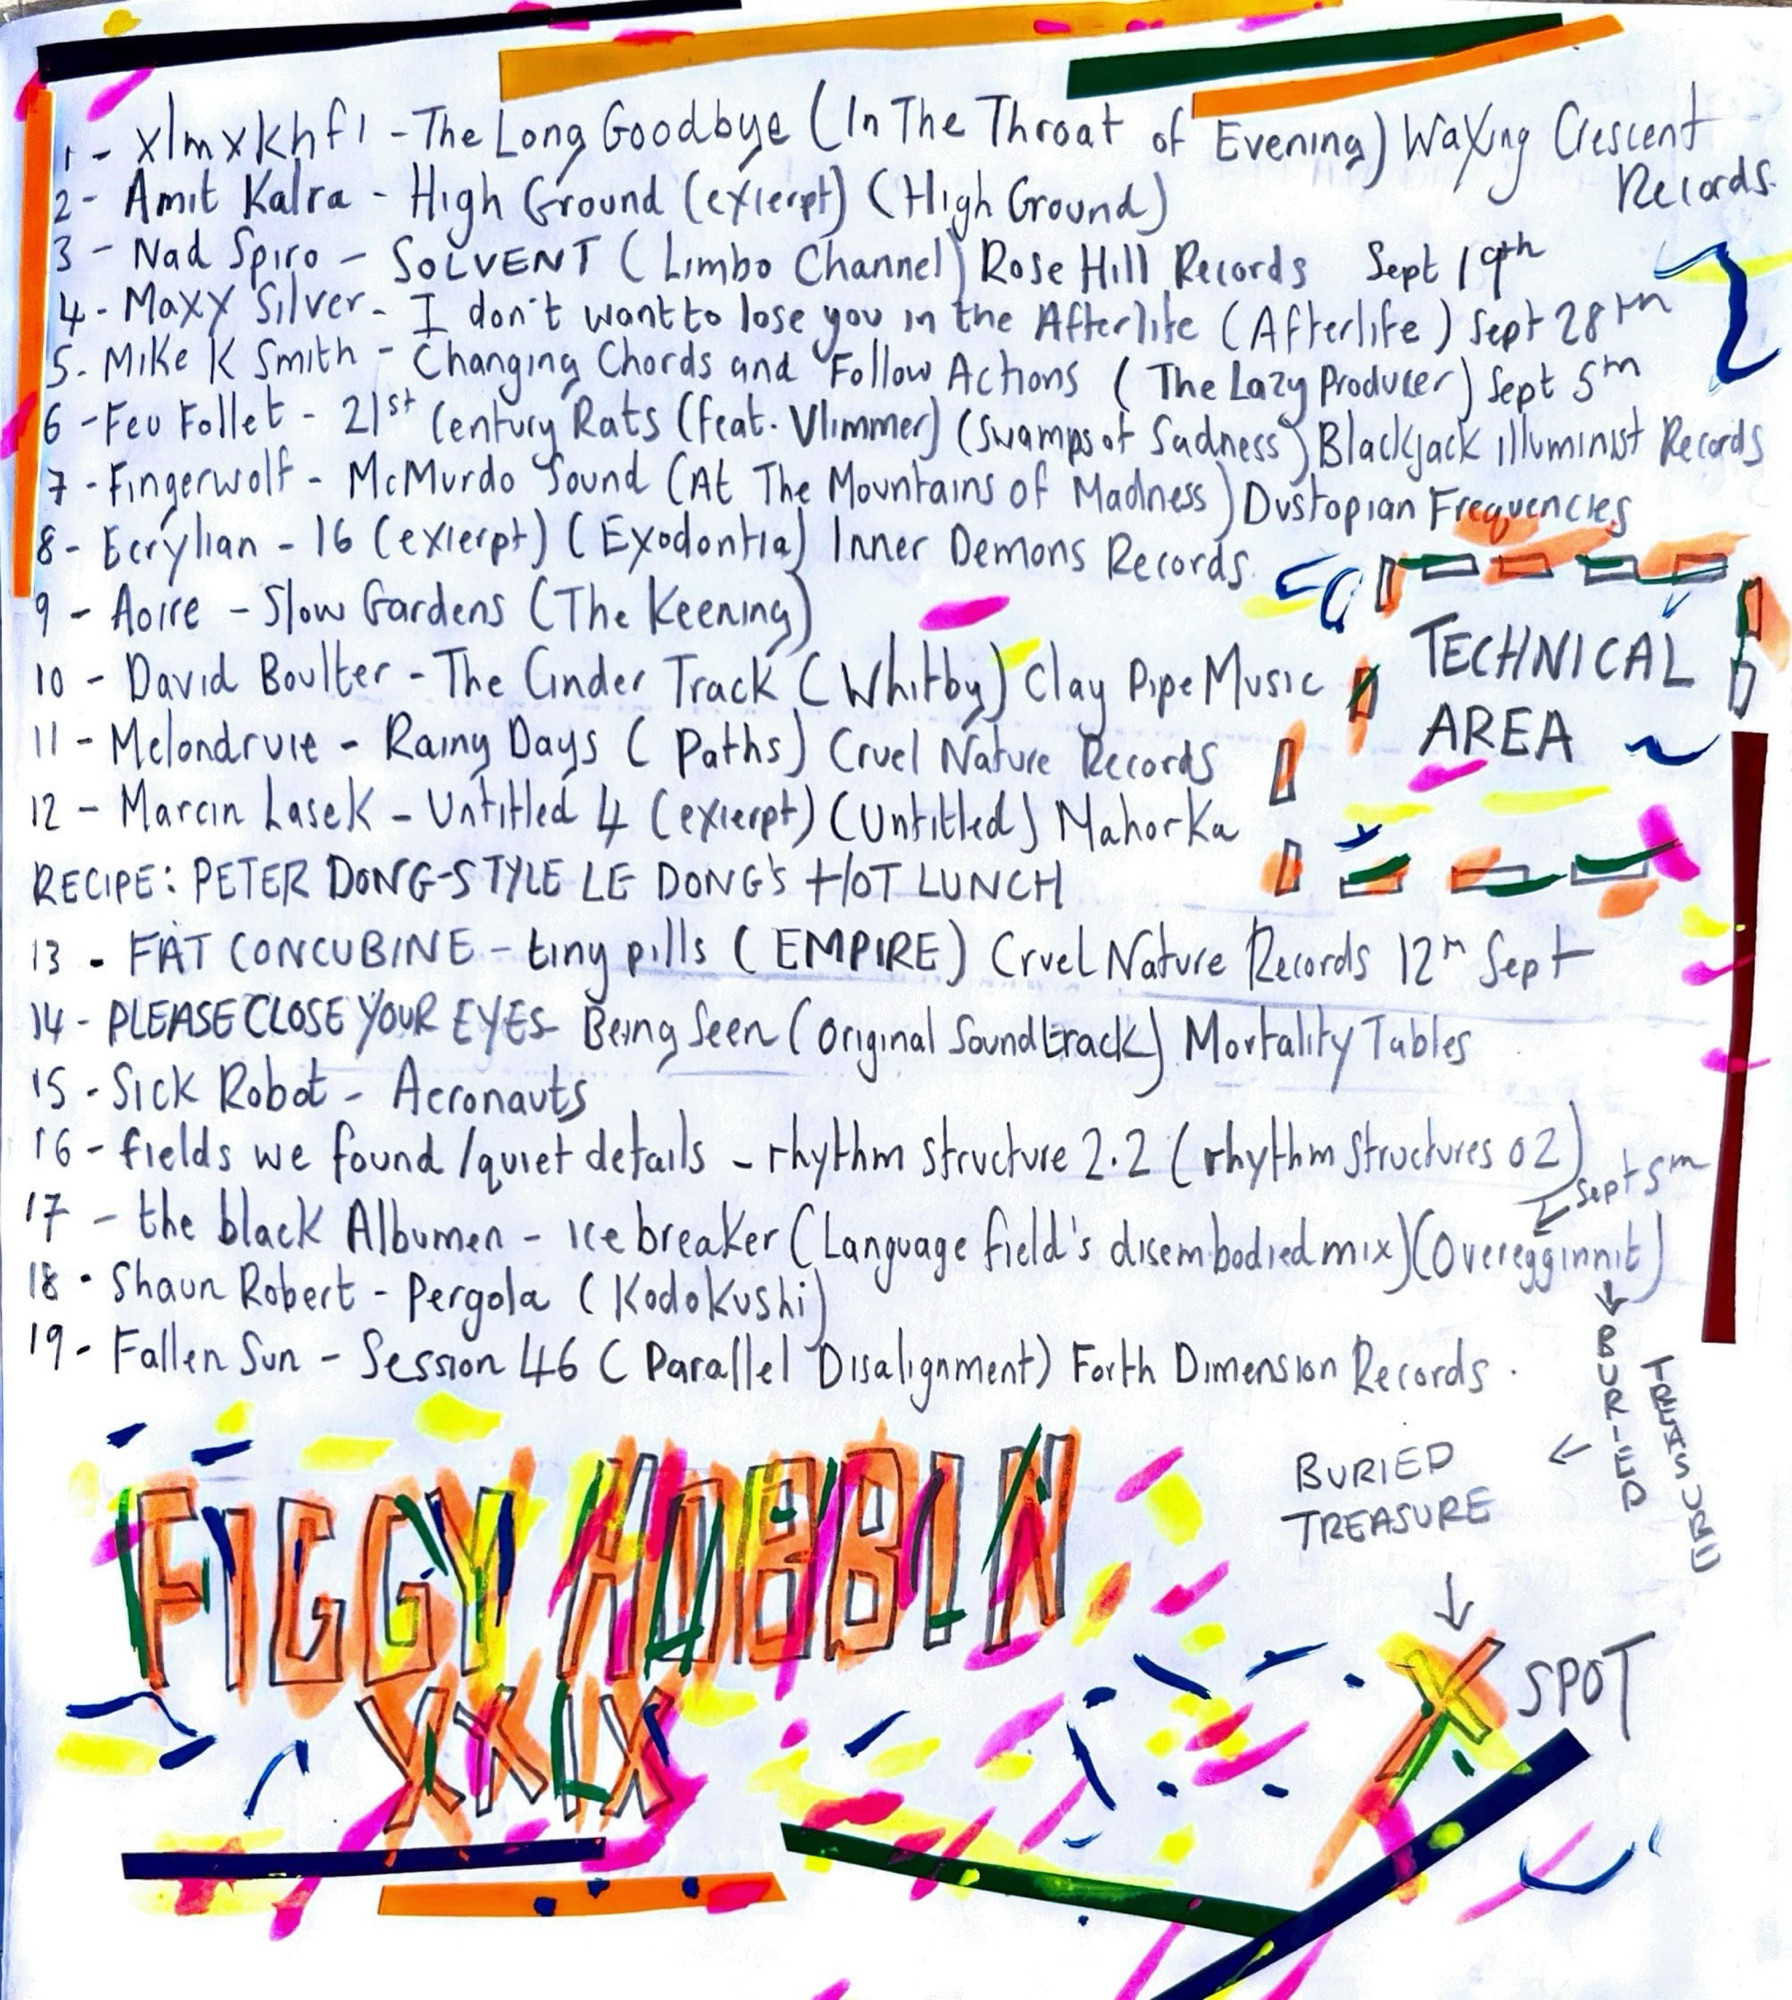 1 - xlmxkhf1 - The Long Goodbye (In The Throat of Evening) Waxing Crescent
Records.
2 - Amit Kalra - High Ground (excerpt) (High Ground)
3 - Nad Spiro - SOLVENT (Limbo Channel) Rose Hill Records Sept 19th
4 - Maxx Silver - I don't want to lose you in the Afterlife (Afterlife) Sept 28th
5. Mike K Smith - Changing Chords and Follow Actions (The Lazy Producer) Sept 5th
6 - Feu Follet - 21st Century Rats (feat. Vlimmer) (Swamps of Sadness) Blackjack illuminist Records
7 - Fingerwolf - McMurdo Sound (At The Mountains of Madness) Dustopian Frequencies
8 - Ecrylian - 16 (excerpt) (Exodontia) Inner Demons Records.
9 - Aoire - Slow Gardens (The Keening)
10 - David Boulter - The Cinder Track (Whitby) Clay Pipe Music
11 - Melondruie - Rainy Days (Paths) Cruel Nature Records
12 - Marcin Lasek - Untitled 4 (excerpt) (Untitled) Mahorka
TECHNICAL
AREA
RECIPE: PETER DONG-STYLE LE DONG'S HOT LUNCH
13 - FAT CONCUBINE - tiny pills (EMPIRE) Cruel Nature Records 12th Sept
14 - PLEASE CLOSE YOUR EYES - Being Seen (Original Soundtrack) Mortality Tables
15 - Sick Robot - Aeronauts
16 - fields we found / quiet details - rhythm structure 2.2 (rhythm structures 02)
Sept 5th
17 - the black Albumen - Ice breaker (Language field's disembodied mix) (Overegginnit)
18 - Shaun Robert - Pergola (Kodokushi)
19 - Fallen Sun - Session 46 (Parallel Disalignment) Forth Dimension Records.
BURIED
TREASURE
BURIED
TREASURE
FIGGY HOBBIN
XXIX
X SPOT